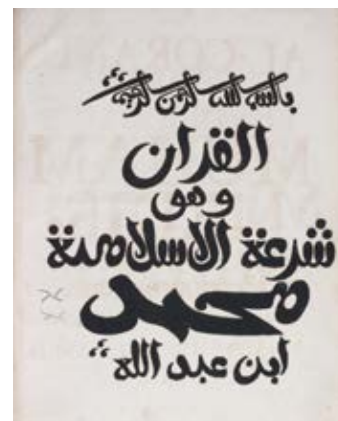 بسم الله الرحمن الرحيم
القران
وهو
شرعة الاسلامية
محمد
ابن عبد الله